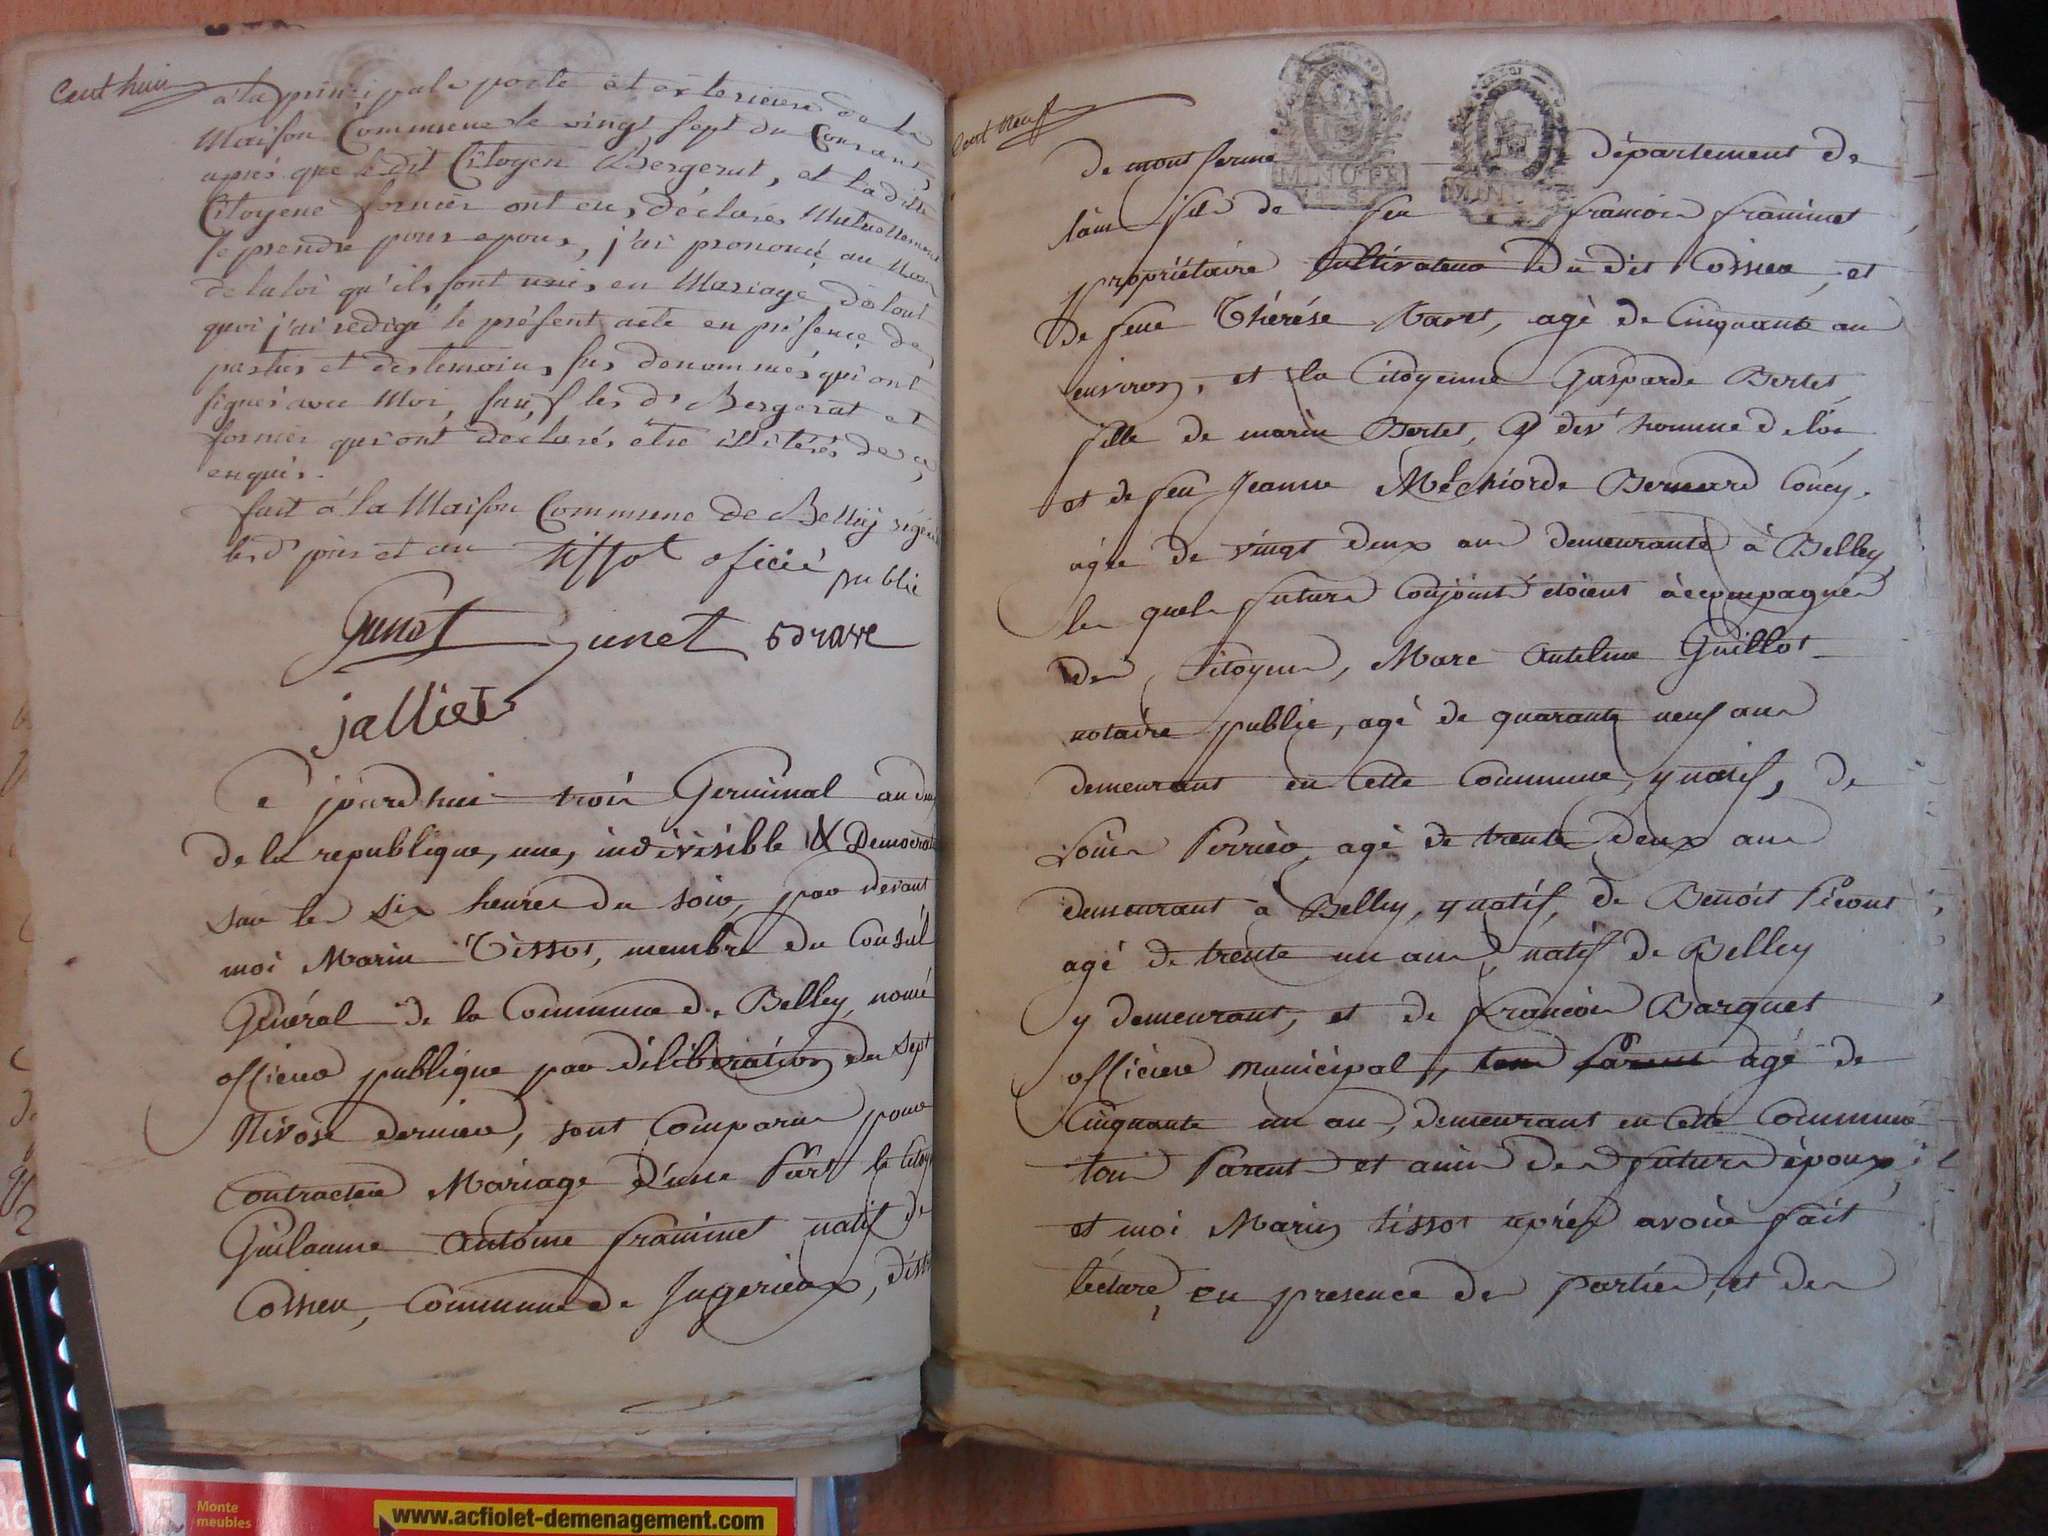 Cent huit
à la principale porte et exterieure de la
Maison Commune le vingt sept du Courant,
après que ledit Citoyen Bergerat, et la ditte
Citoyene fornier ont eu, déclaré, Mutuellement
se prendre pour epoux, j'ai prononcé au Nom
de la loi qu'ils sont unis en Mariage, de tout
quoi j'ai redigé le présent acte en présence des
parties et des temoins sus denommés qui ont
signés avec Moi, sauf les d' Bergerat et
fornier qui ont déclarés être illitérés de ce
enquis.
fait à la Maison Commune de Belley
les d' jour et an tissot oficié public
Gunet Gunet
jalliet
Ce jourdhui trois Germinal an deux
de la republique, une, indivisible & Democrati
sur les six heures du soir, par devant
moi Marin Tissot, membre du Conseil
Général de la Commune de Belley, nomé
officier publique par déliberation du sept
Nivose dernier, sont Comparus pour
Contracter Mariage d'une Part le Citoy
Guilaume Antoine fraiminet natif de
Cossieu, Commune de Jugerieux, dist
Cent Neuf
de montferme département de
lain fils de feu francois fraiminet
propriétaire Cultivateur du dit Cossieu, et
de feue Thérése Varet, agé de Cinquante ans
environ, et la Citoyenne Gasparde Bertet
fille de marin Bertet, dev' homme de loi
et de feu Jeanne Melchiorde Bernard
agée de vingt deux ans demeurante à Belley,
les quels futurs Conjoints étoient accompagnés
des Citoyens, Marc Antelme Guillot
notaire public, agé de quarante neuf ans
demeurant en Cette Commune, y natif, de
Louis Perrier, agé de trente deux ans
demeurant à Belley, y natif, de Benoit Picout
agé de trente un ans, natif de Belley
y demeurant, et de francois Barquet
officier municipal, tous Parents agé de
Cinquante un an, demeurant en Cette Commune
tous Parents et amis des futurs époux,
et moi Marin tissot après avoir fait
lecture, en presence des parties, et des
MINUTE
MINUTE
Monte
meubles
www.acfiolet-demenagement.com